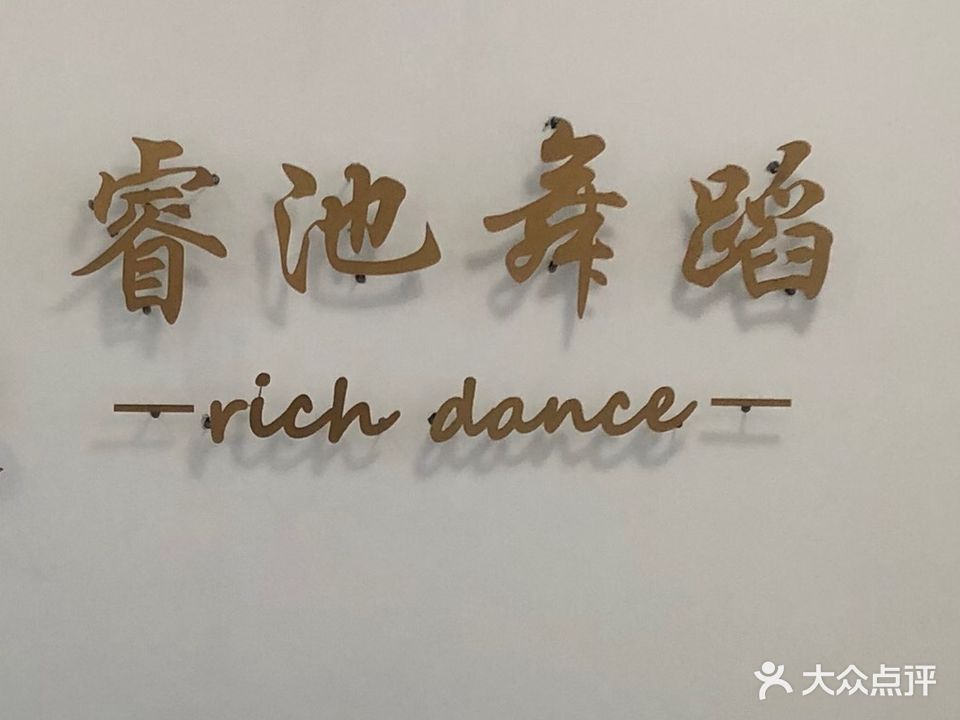 睿池舞蹈
rich dance
大众点评